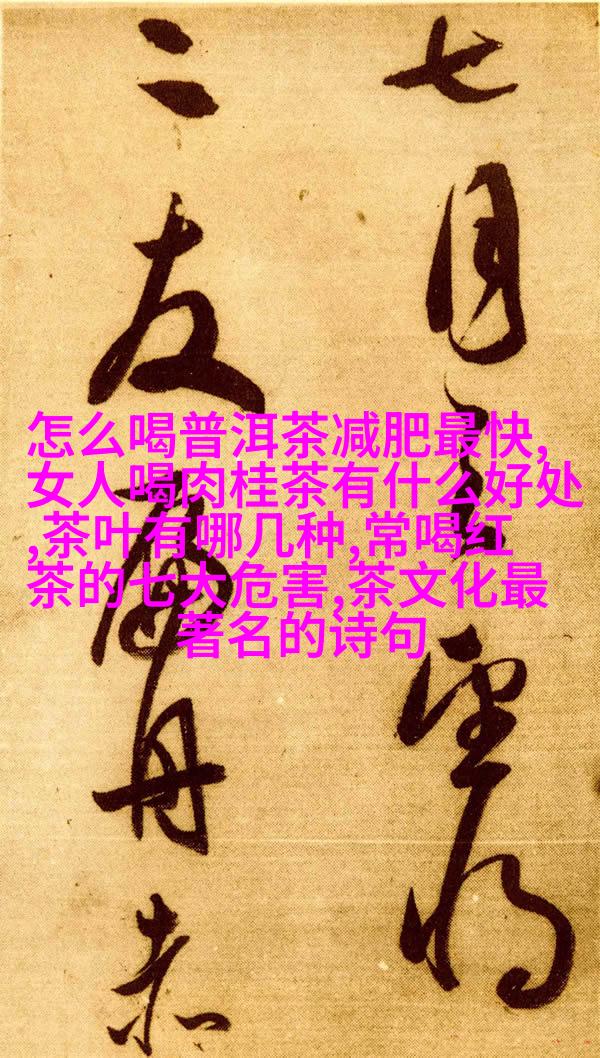 七月望将
二友舟赤
怎么喝普洱茶减肥最快,
女人喝肉桂茶有什么好处
,茶叶有哪几种,常喝红
茶的七大危害,茶文化最
著名的诗句